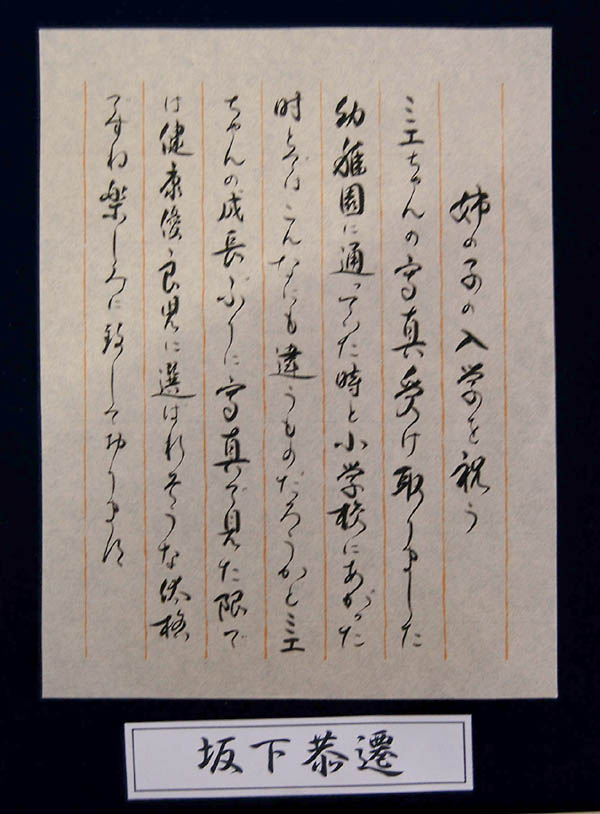 姉の子の入学を祝う
ミエちゃんの写真受け取りました
幼稚園に通っていた時と小学校にあがった
時とではこんなにも違うものだろうかとミエ
ちゃんの成長ぶりに写真で見た限りで
は健康優良児に選ばれそうな体格
ですね楽しみに致しております
坂下恭遷